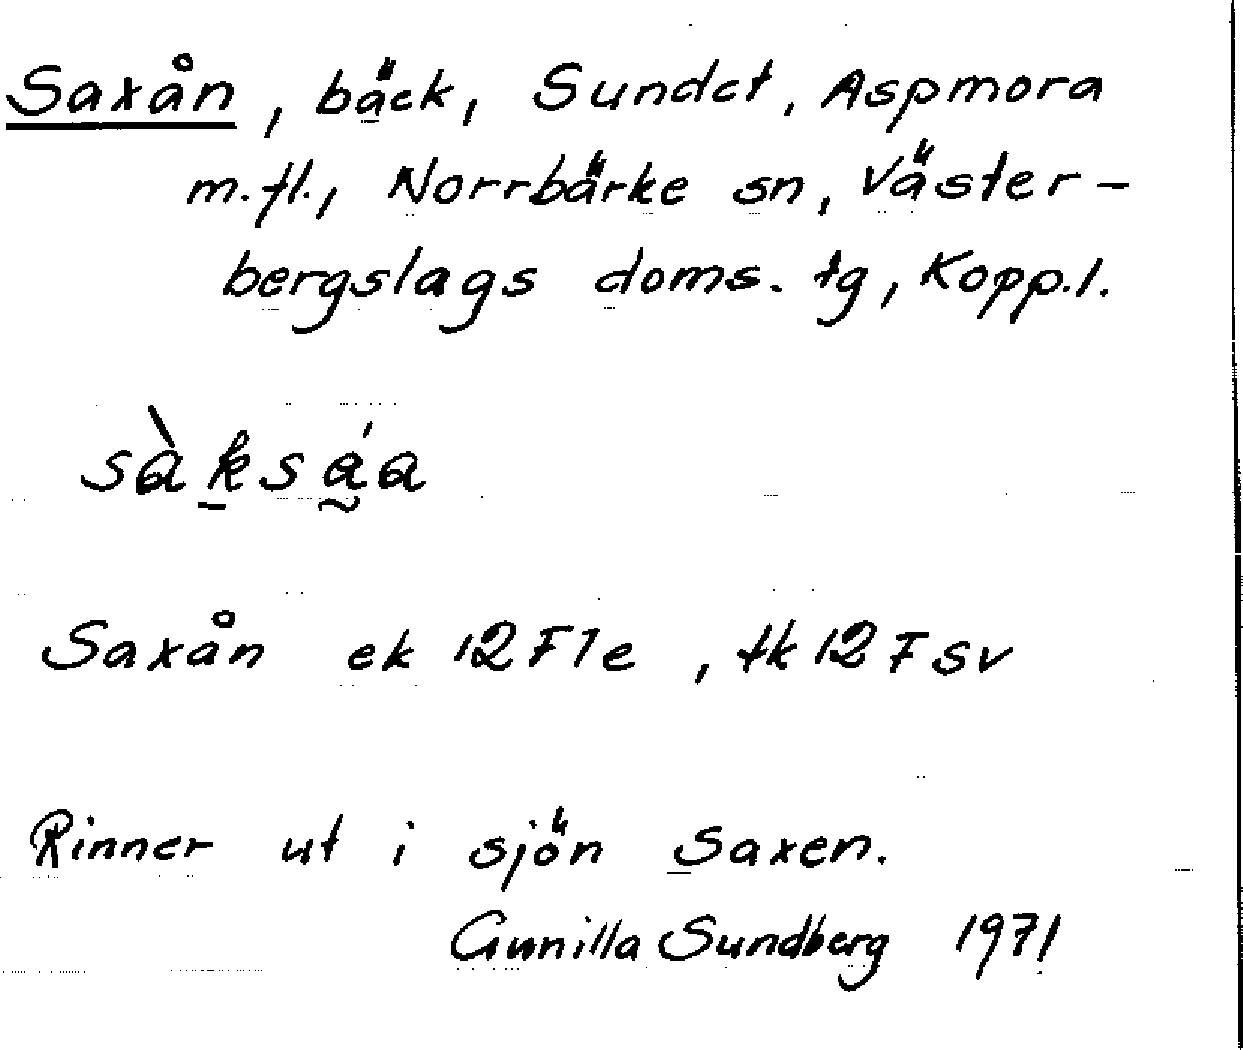 Saxån, bäck, Sundet, Aspmora
m.fl., Norrbärke sn, Väster-
bergslags doms. tg, Kopp.l.
sàk̠sá̰a
Saxån ek 12F1e, tk 12F sv
Rinner ut i sjön Saxen.
Gunilla Sundberg 1971